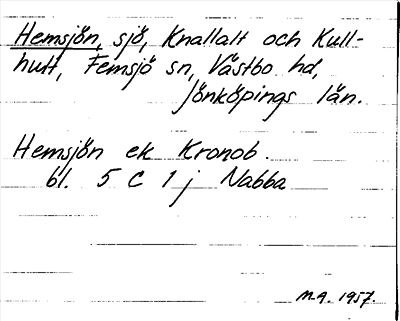 Hemsjön, sjö, Knallalt och Kull-
hult, Femsjö sn, Västbo hd,
Jönköpings län.
Hemsjön ek Kronob.
bl. 5 C 1 j Nabba
M.A. 1957.